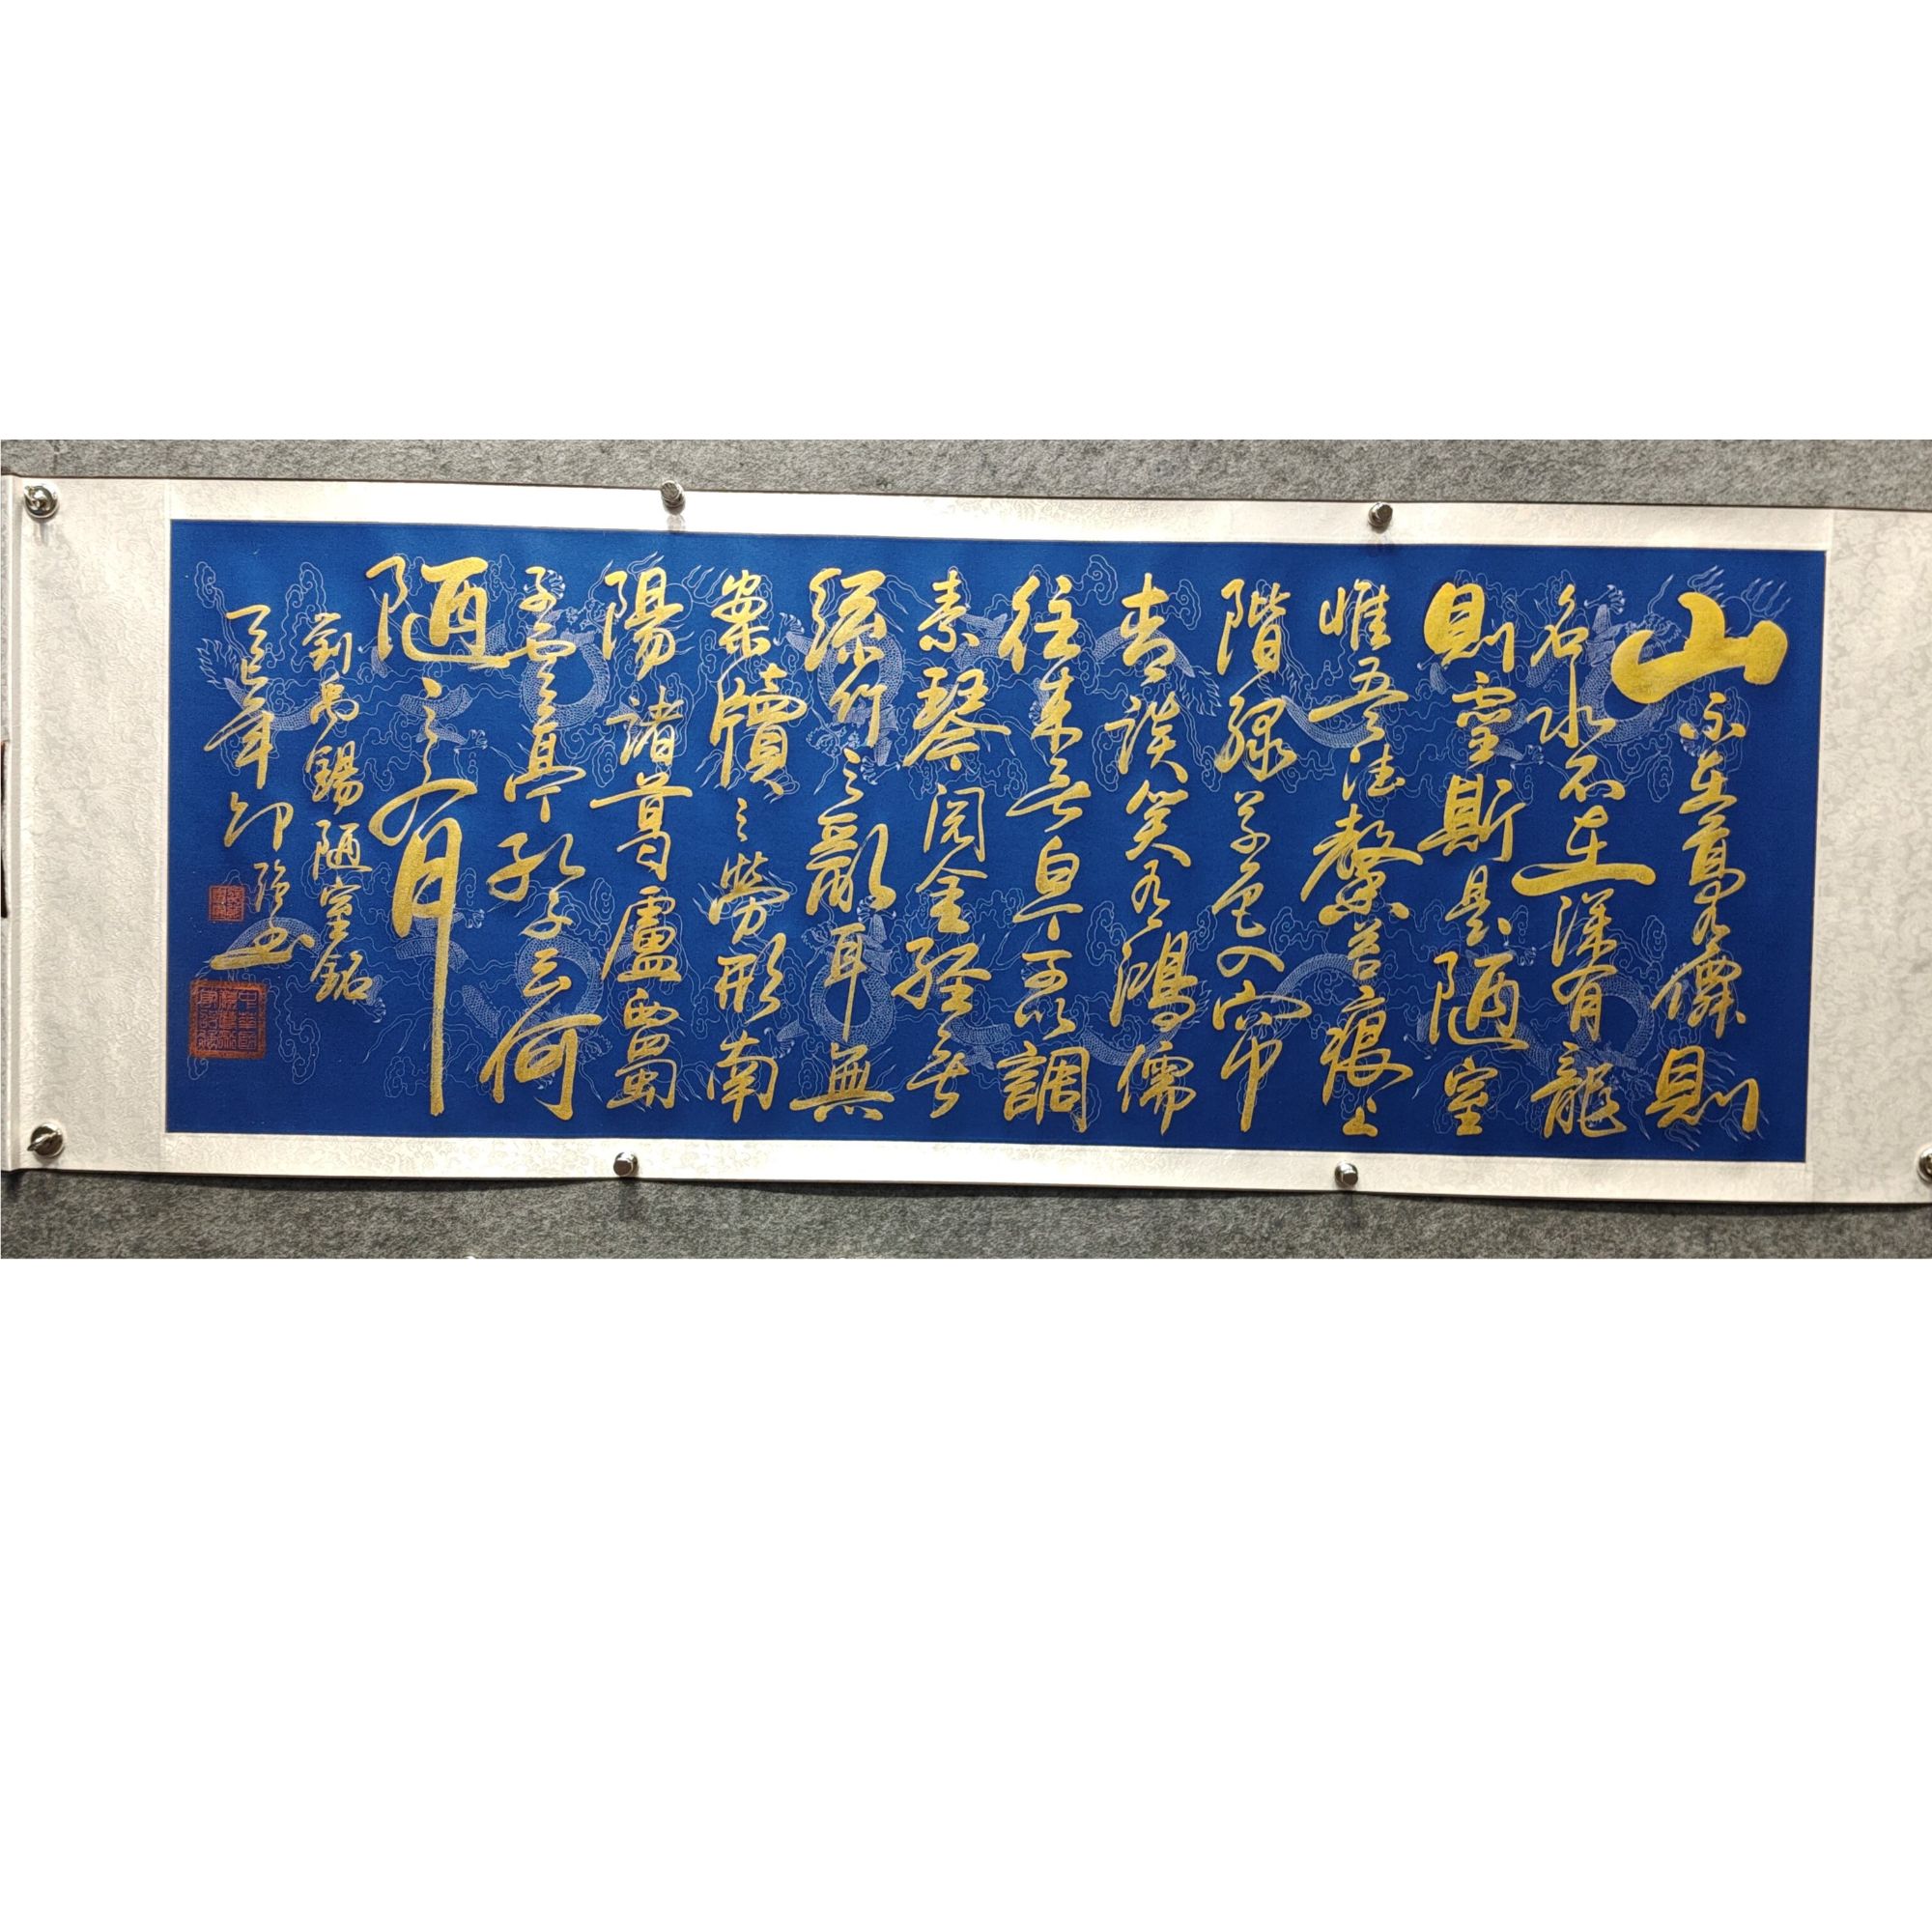 山不在高有僊則
名水不在深有龍
則靈斯是陋室
惟吾德馨苔痕上
階綠草色入帘
青談笑有鴻儒
往來无白丁可以調
素琴閱金經无
絲竹之亂耳無
案牘之勞形南
陽諸葛廬西蜀
子雲亭孔子云何
陋之有
劉禹錫陋室銘
乙巳年書